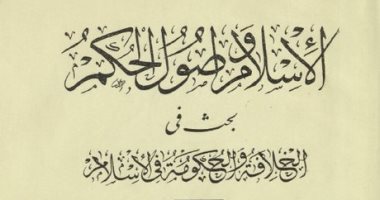 الإسلام وأصول الحكم
بحث في
الخلافة والحكومة في الإسلام